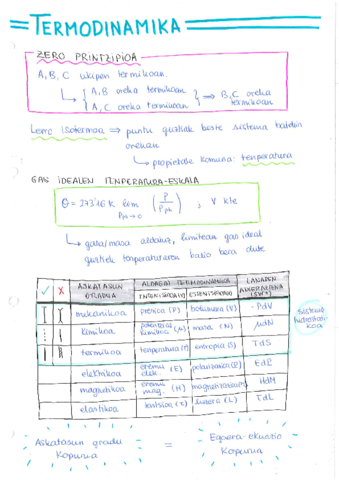 TERMODINAMIKA
ZERO PRINTZIPIOA
A, B, C ukipen termikoan.
A, B oreka termikoan
A, C oreka termikoan
⇒ B, C oreka termikoan
Lerro isotermoa ⇒ puntu guztiak beste sistema batekin orekan
propietate komuna: tenperatura
GAS IDEALEN TENPERATURA-ESKALA
θ = 273'16 K lim (P/Pph) , V kte
Pph→0
gasa/masa aldatuz, limitean gas ideal
guztiek tenperaturaren balio bera dute
✓ X ASKATASUN GRADUA ALDAGAI TERMODINAMIKOA LANAREN ADIERAZPENA (δW)
INTENTSIBOA ESTENTSIBOA
mekanikoa presioa (P) bolumena (V) -PdV
kimikoa potentzial kimikoa (μ) masa (N) μdN
termikoa tenperatura (T) entropia (S) TdS
elektrikoa eremu elek. (E) polarizazioa (P) EdP
magnetikoa eremu mag. (H) magnetizazioa HdM
elastikoa tentsioa (τ) luzera (L) τdL
Askatasun gradu kopurua = Egoera-ekuazio kopurua